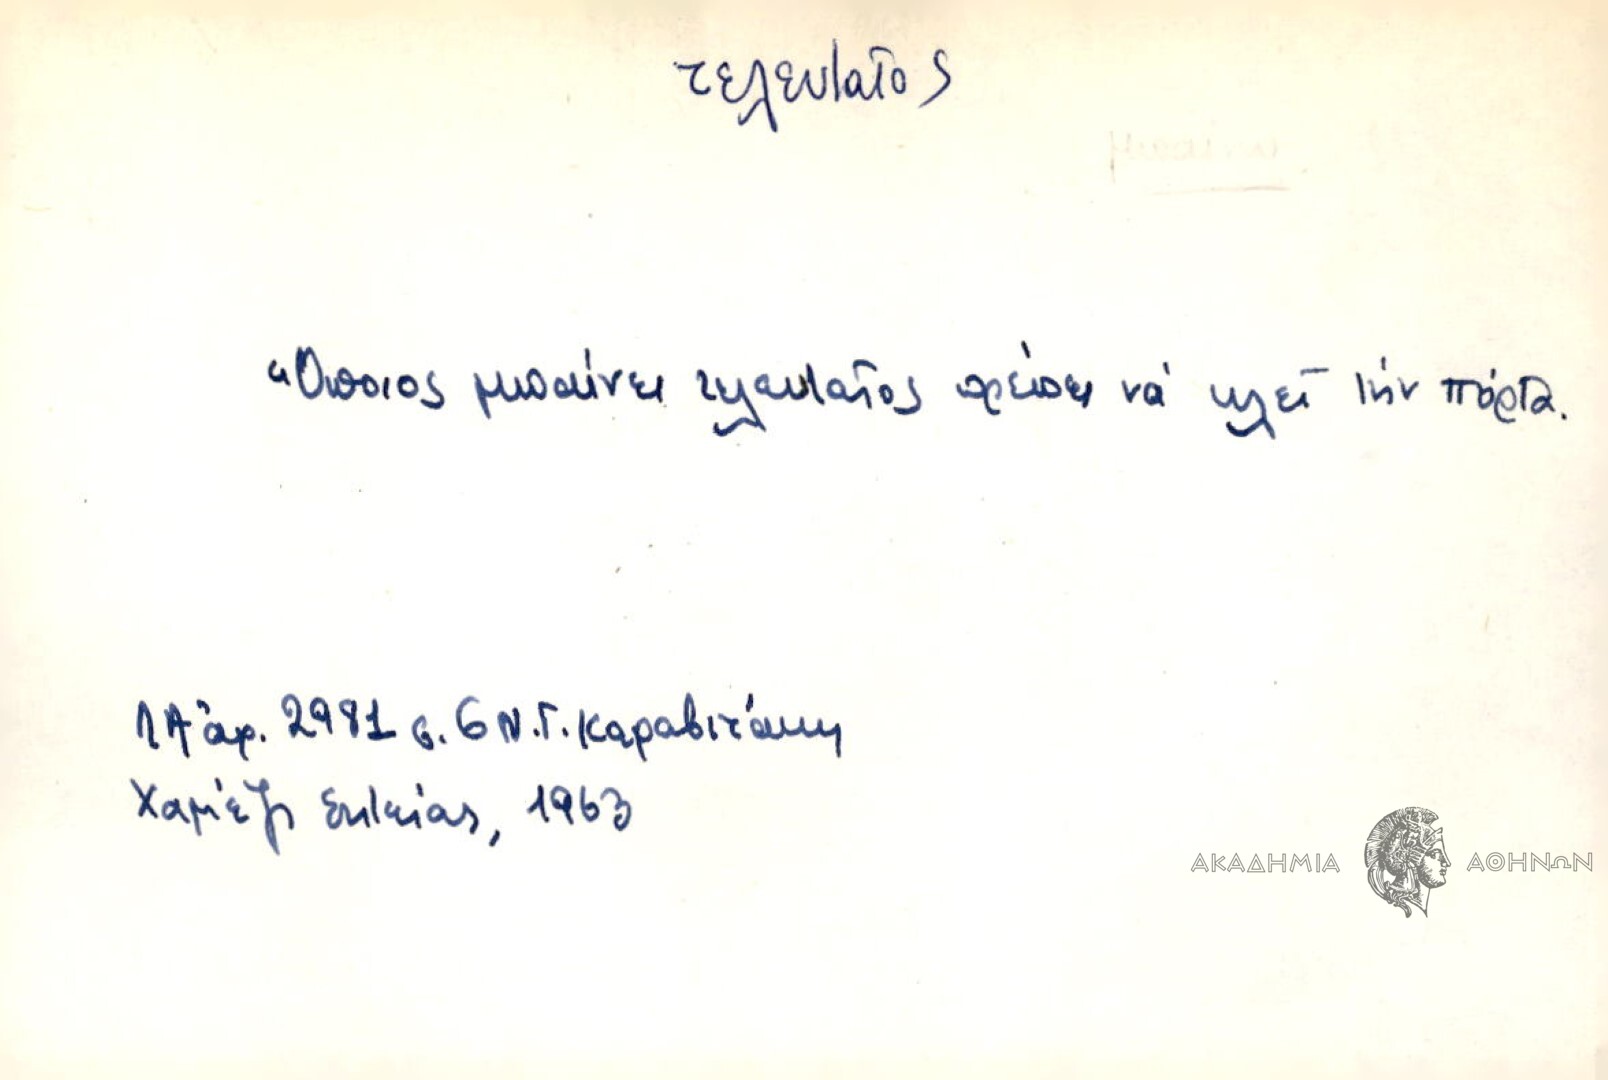 τελευταῖος
Ὅποιος μπαίνει τελευταῖος πρέπει νά κλεῖ τήν πόρτα.
ΛΑ ἀρ. 2981 σ. 6 Ν. Γ. Καραβιτάκη
Χαμέζι Σητείας, 1963
ΑΚΑΔΗΜΙΑ ΑΘΗΝΩΝ